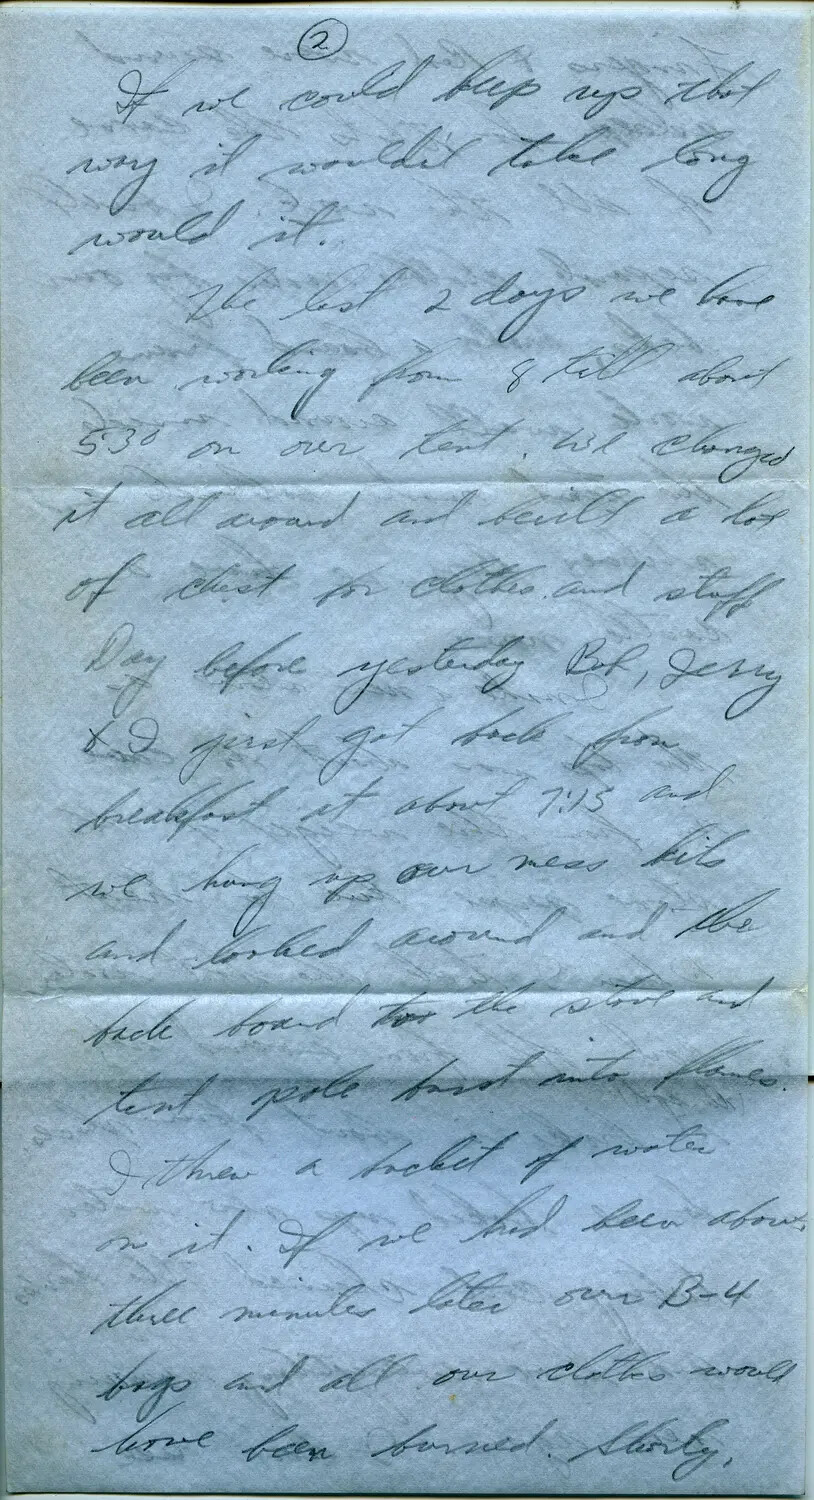 2
If we could keep up that
way it wouldn't take long
would it.
The last 2 days we have
been working from 8 till about
530 on our tent. We changed
it all around and built a lot
of chest for clothes and stuff
Day before yesterday Bob, Jerry
& I just got back from
breakfast it about 7:15 and
we hung up our mess kits
and looked around and the
back board the stove and
tent pole burst into flames.
I threw a bucket of water
on it. If we had been about
three minutes later our B-4
bags and all our clothes would
have been burned. Shorty,